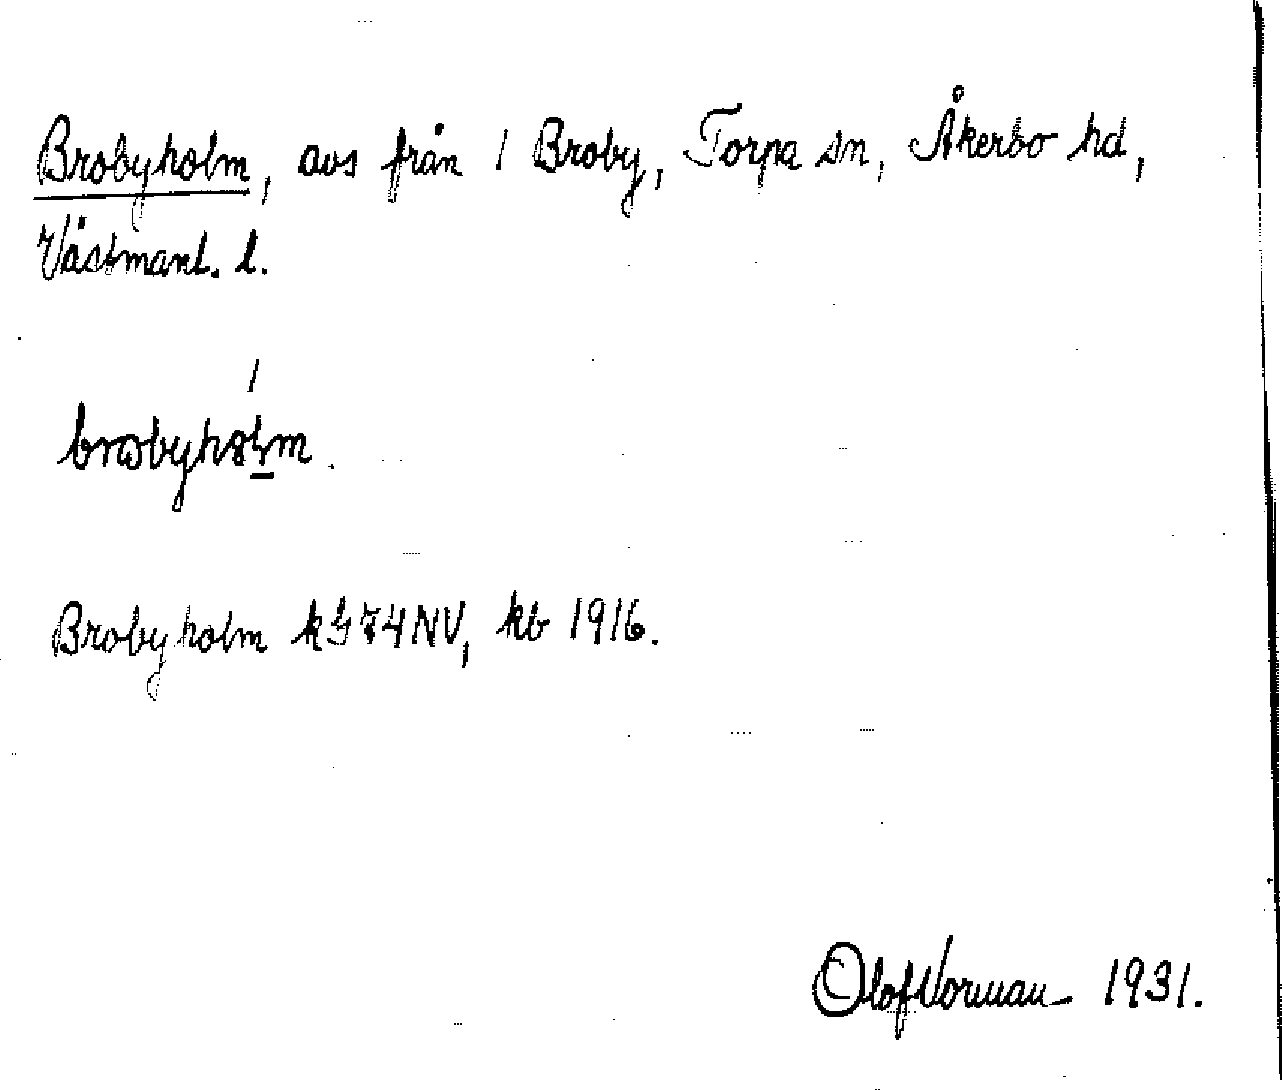 Brobyholm, avs från 1 Broby, Torpa sn, Åkerbo hd,
Västmanl. l.
Brobyholm kG 74 NV, kb 1916.
Olof Norman 1931.